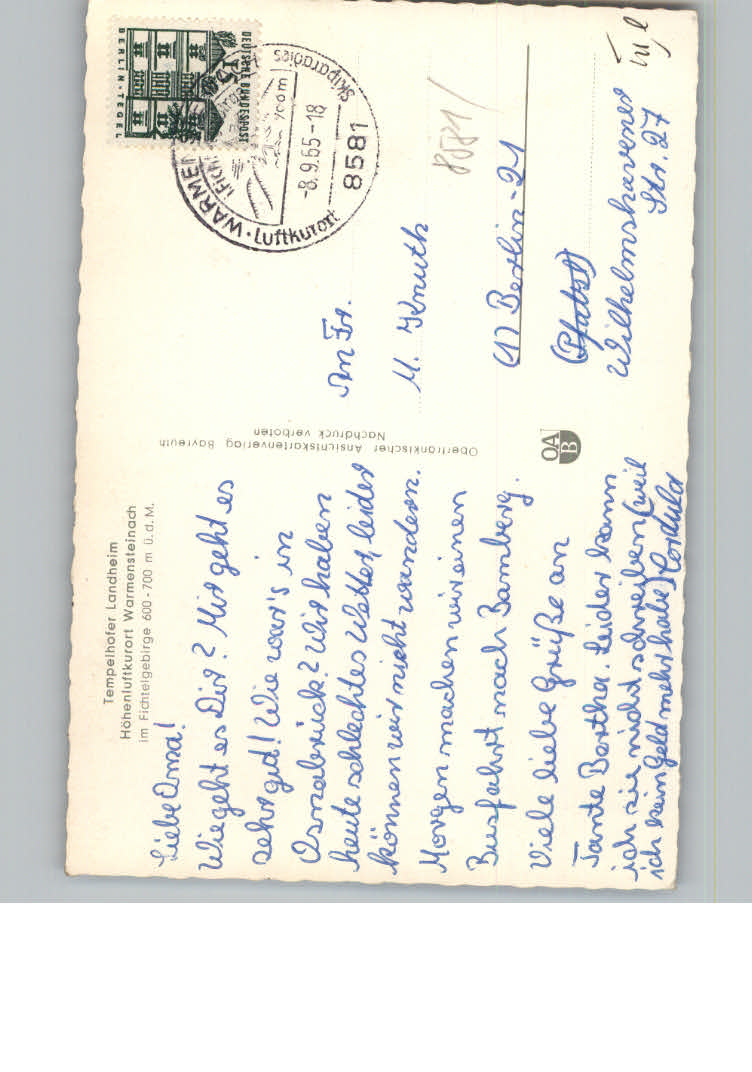 Tempelhofer Landheim
Höhenluftkurort Warmensteinach
im Fichtelgebirge 600-700 m ü. d. M.
Liebe Oma!
Wie geht es Dir? Mir geht es
sehr gut! Wie war's in
Osnabrück? Wir haben
heute schlechtes Wetter, leider
können wir nicht wandern.
Morgen machen wir einen
Busfahrt nach Bamberg.
Viele liebe Grüße an
Tante Bertha. Leider kann
ich sie nicht schreiben (weil
ich kein Geld mehr habe) Cordula
Oberfränkischer Ansichtskartenverlag Bayreuth
Nachdruck verboten
OA
B
DEUTSCHE BUNDESPOST
15
BERLIN-TEGEL
WARMEN
Luftkurort
Skiparadies
700m
-8.9.65-18
8581
8581/
An Fr.
M. Knuth
(1) Berlin-21
Wilhelmshavener
Str. 27